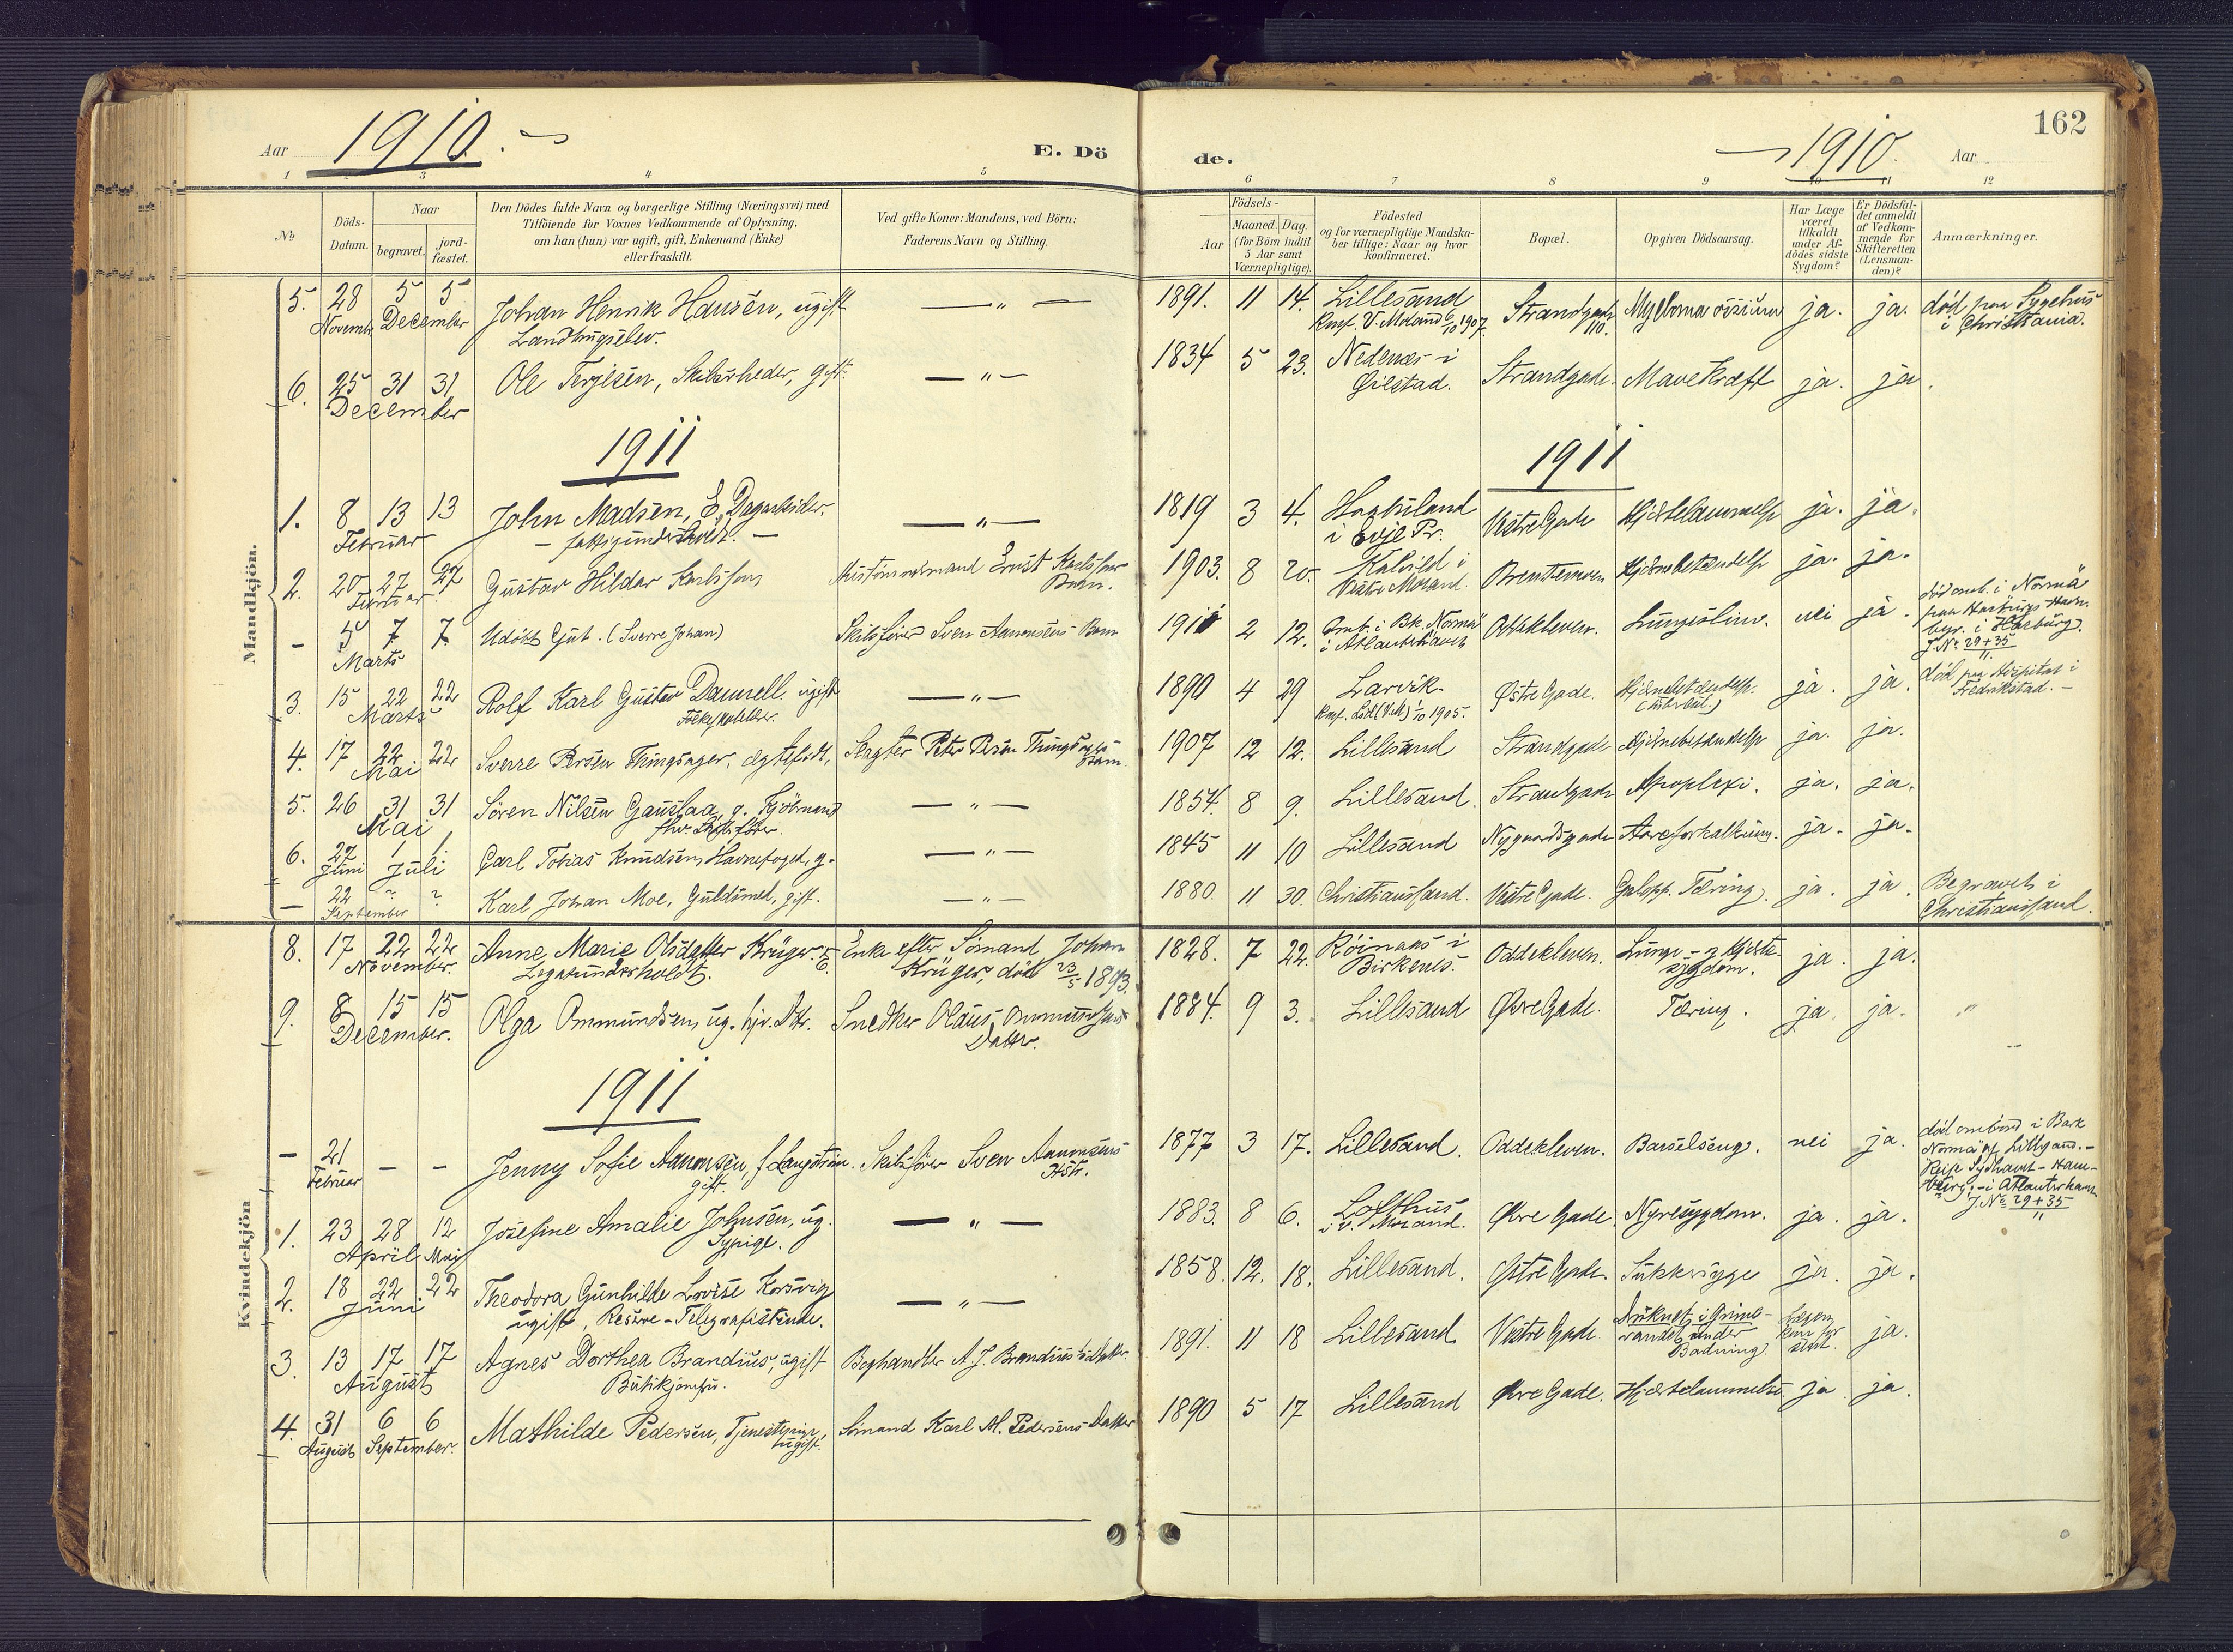 162
Aar 1910. E. Döde. 1910. Aar
1 3 4 5 6 7 8 9 10 11 12
No
Döds-Datum.
Naar
begravet. jord-fæstet.
Den Dödes fulde Navn og borgerlige Stilling (Næringsvei) med
Tilföiende for Voxnes Vedkommende af Oplysning,
om han (hun) var ugift, gift, Enkemand (Enke)
eller fraskilt.
Ved gifte Koner: Mandens, ved Börn:
Faderens Navn og Stilling.
Födsels-
Aar
Maaned. Dag.
(for Börn indtil
5 Aar samt
Værnepligtige).
Födested
og for værnepligtige Mandska-
ber tillige: Naar og hvor
konfirmeret.
Bopæl.
Opgiven Dödsaarsag.
Har Læge
været
tilkaldt
under Af-
dödes sidste
Sygdom?
Er Dödsfal-
det anmeldt
af Vedkom-
mende for
Skifteretten
(Lensman-
den)?
Anmærkninger.
Mandkjön.
5. 28 5 5 Johan Henrik Hansen, ugift — " — 1891. 11 14. Lillesand Strandgade Myeloma ossium ja. ja. död paa Sygehus
Novembr December Landbrugselev. Knf. V. Moland 6/10 1907. 110. i Christiania.
6. 25 31 31 Ole Terjesen, Skibsrheder, gift. — " — 1834 5 23. Nedenæs i Strandgade. Mavekræft ja. ja.
December Öiestad.
1911 1911
1. 8 13 13 John Madsen, E, Dagarbeider. — " — 1819 3 4. i Evje Pr. Vestre Gade Hjertelammelse ja. ja.
Februar — fattigunderstöttet. —
2. 20 27 27 Gustav Hildar Karlsson Ernst Karlssons Barn. 1903. 8 20. Kalvild i Hjernebetændelse ja. ja.
Februar Vestre Moland.
- 5 7 7. Udöbt Gut. (Sverre Johan) Skibsförer Sven Aanonsens Barn 1911 2 12. Omb. i Bk. Norma Oddekleven. Lungeslim. nei ja. död omb. i Norma
Marts i Atlanterhavet paa Harburgs Havn.
begr. i Harburg.
J. No 29+35/11.
3. 15 22 22 Rolf Karl Gustav Dannell, ugift — " — 1890 4 29 Larvik. Östre Gade. Hjernebetændelse. ja. ja. död paa Hospital i
Marts Knf. 1/10 1905. Fredrikstad. —
4. 17 22 22 Sverre Persen Thingsager, ægtefödt, Slagter Peter Persen Thingsagers Barn. 1907 12 12. Lillesand Strandgade Hjernebetændelse ja. ja.
Mai
5. 26 31 31 Sören Nilsen Gauslaa, g. — " — 1854. 8 9. Lillesand. Strandgade Apoplexi. ja. ja.
Mai fhv. Skibsförer.
6. 27 1 1 Carl Tobias Knudsen, Havnefoged, g. — " — 1845 11 10 Lillesand Nygaardsgade Aareforkalkning. ja. ja.
Juni Juli
— 22 ? ? Karl Johan Moe, Guldsmed, gift. — " — 1880. 11 30. Christianssand. Vestre Gade. Galopp. Tæring. ja. ja. Begravet i
September Christianssand.
Kvindekjön
8. 17 22 22 Anne Marie Olsdatter Krüger. E. Enke efter Sömand Johan 1828. 7 22. Röinaas i Oddekleven. Lunge- og Hjerte- ja. ja.
November. Legatunderholdt. Krüger, död 23/5 1893. Birkenes. sygdom.
9. 8 15 15 Olga Ommundsen, ug. hjv. Dtr. Snedker Olaus Ommundsens 1884. 9 3. Lillesand Övre Gade. Tæring. ja. ja.
December. Datter.
1911
— 21 — — Jenny Sofie Aanonsen, f. Langström. Skibsförer Sven Aanonsens 1877 3 17. Lillesand. Oddekleven. Barselseng. nei ja. död ombord i Bark
Februar gift. Hstr. Norma af Lillesand. —
Reise Sydhavet - Ham-
burg, - i Atlanterhavet
J. No 29+35/11
1. 23 28 12 Josefine Amalie Johnsen, ug. — " — 1883. 8 6. Lofthus Övre Gade. Nyresygdom. ja. ja.
April Mai Sypige. i V. Moland.
2. 18 22 22 Theodora Gunhilde Lovise Korsvig — " — 1858. 12. 18. Lillesand. Östre Gade. Sukkersyge ja. ja.
Juni ugift, Reserve-Telegrafistinde.
3. 13 17 17 Agnes Dorthea Brandius, ugift Boghandler A. J. Brandius's Datter. 1891. 11 18 Lillesand Vestre Gade. Druknet i Grims- Lægen ja.
August Butikjomfru. vandet under kom for
Badning. sent.
4. 31 6 6 Mathilde Pedersen, Tjenestepige, Sömand Karl M. Pedersens Datter 1890 5 17 Lillesand Övre Gade. Hjertelammelse ja. ja.
August September. ugift.